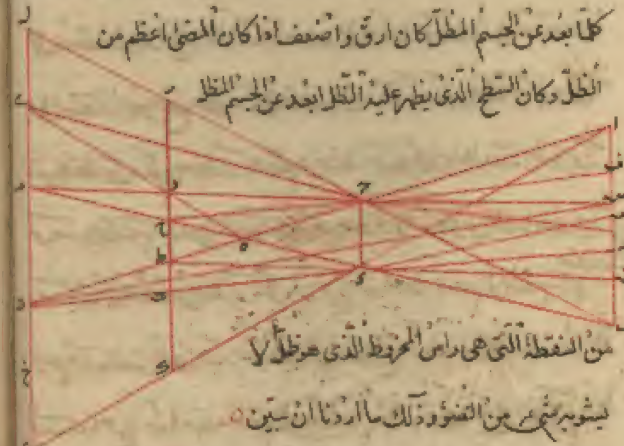 كلما بعد عن الجسم المظلّ كان ارقّ واضعف اذا كان المضئ اعظم من
المظلّ وكان السّطح الّذى يظهر عليه الظّلّ ابعد عن الجسم المظلّ
من النقطة الّتى هى راس المخروط الّذى هو ظلّ لا
يشوبه شئ من الضّوء وذلك ما اردنا ان نبيّن